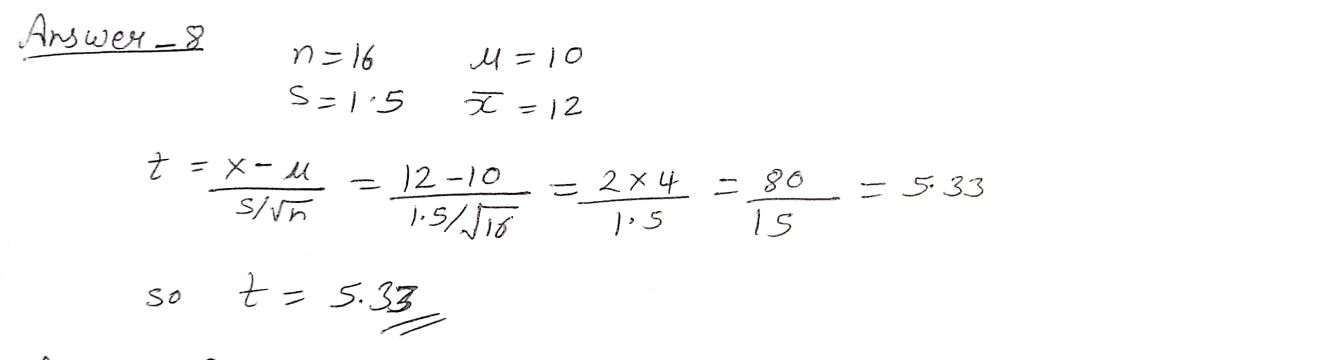 Answer - 8
n = 16 μ = 10
S = 1.5 x̅ = 12
t = x - μ / S/√n = 12 - 10 / 1.5/√16 = 2 × 4 / 1.5 = 80 / 15 = 5.33
so t = 5.33